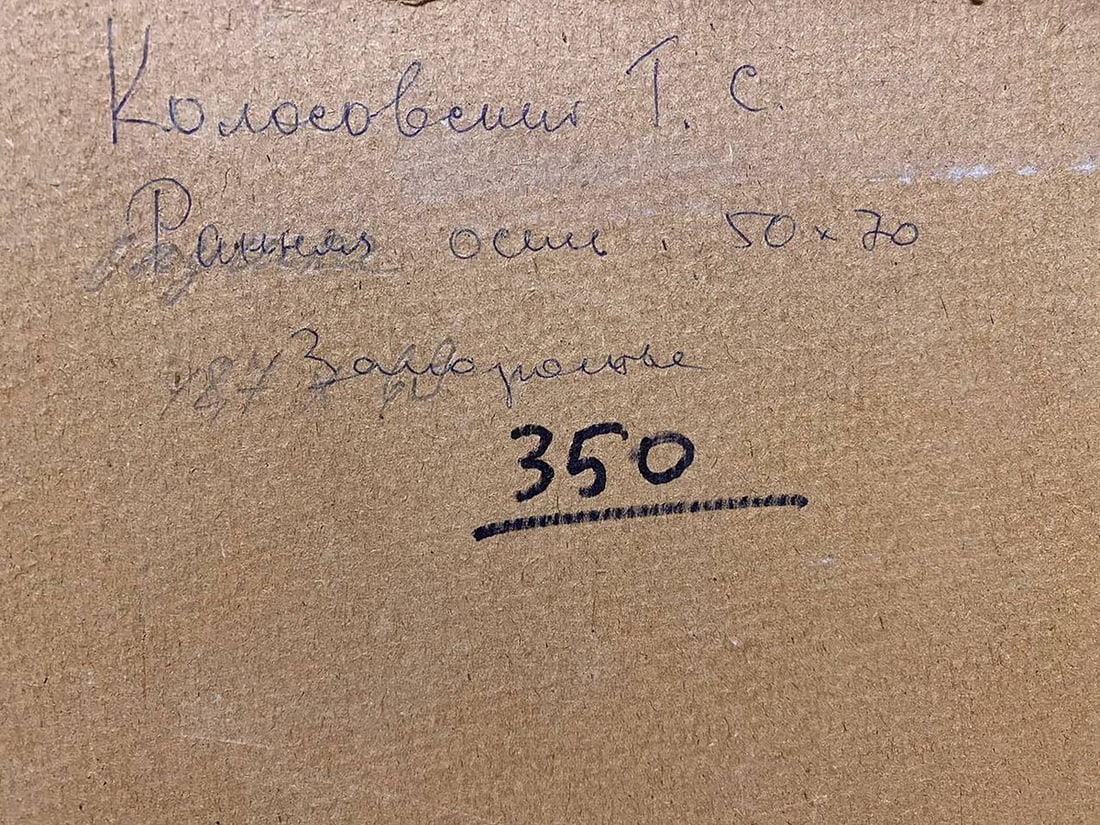 Колосовский Т. С.
Ранняя осень. 50×70
Запорожье
350